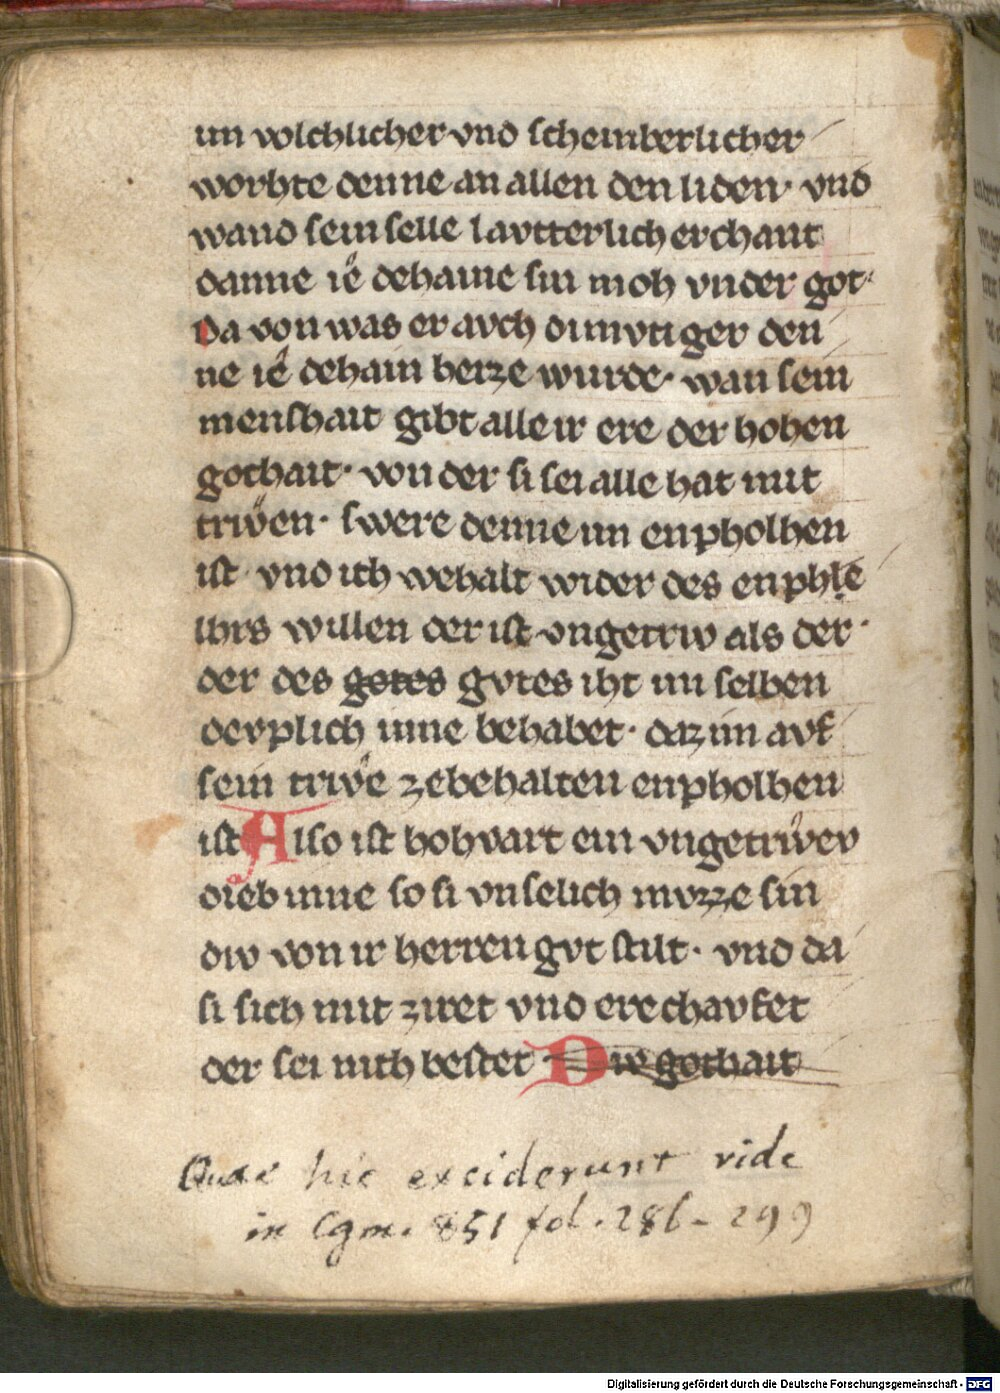 im volchlicher vnd scheinberlicher
worhte denne an allen den liden· vnd
wand sein selle lavtterlich erchant
danne ie dehaine sin moh vnder got·
Da von was er avch dimvtiger den
ne ie dehain herze wurde· wan sein
menshait gibt alle ir ere der hohen
gothait· von der si sei alle hat mit
triwen· swere denne im enpholhen
ist· vnd ich wehalt wider des enphle
lhrs willen der ist vngetriw als der·
der des gotes gvtes iht im selben
devplich inne behabet· daz im avf
sein triwe zebehalten enpholhen
ist Also ist hohvart ein vngetriwev
dieb inne so si vnselich mvzze sin
div von ir herren gvt stilt· vnd da
si sich mit ziret vnd ere chavfet
der sei nith bestet Div gothait
Quae hic exciderunt vide
in Cgm. 851 fol. 286 - 299
Digitalisierung gefördert durch die Deutsche Forschungsgemeinschaft - DFG